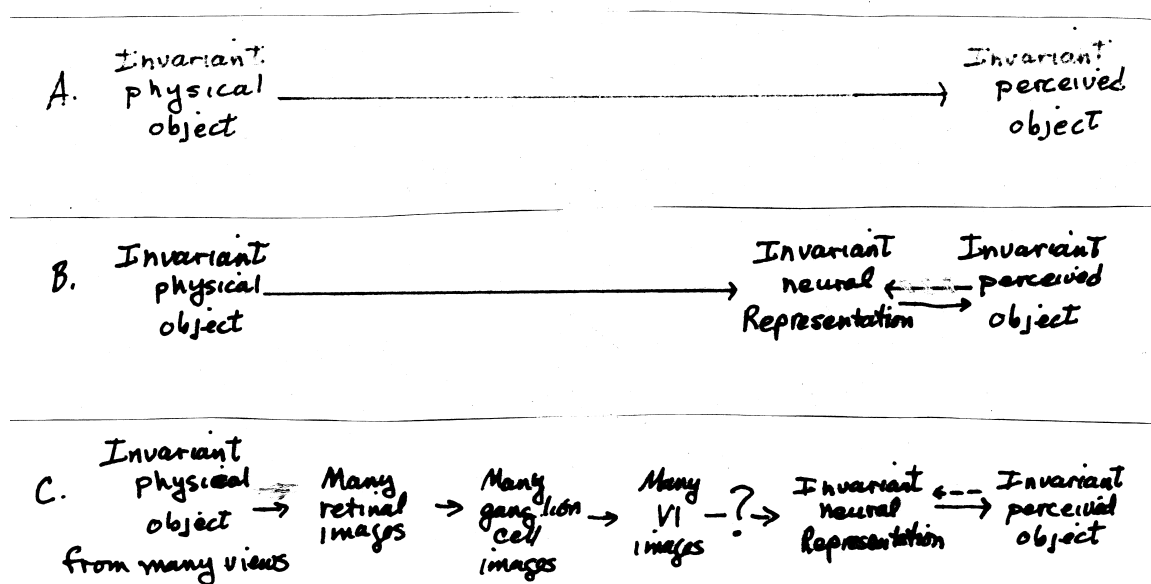 A. Invariant physical object
Invariant perceived object
B. Invariant physical object
Invariant neural Representation
Invariant perceived object
C. Invariant physical object from many views
Many retinal images
Many ganglion cell images
Many V1 images
?
Invariant neural Representation
Invariant perceived object